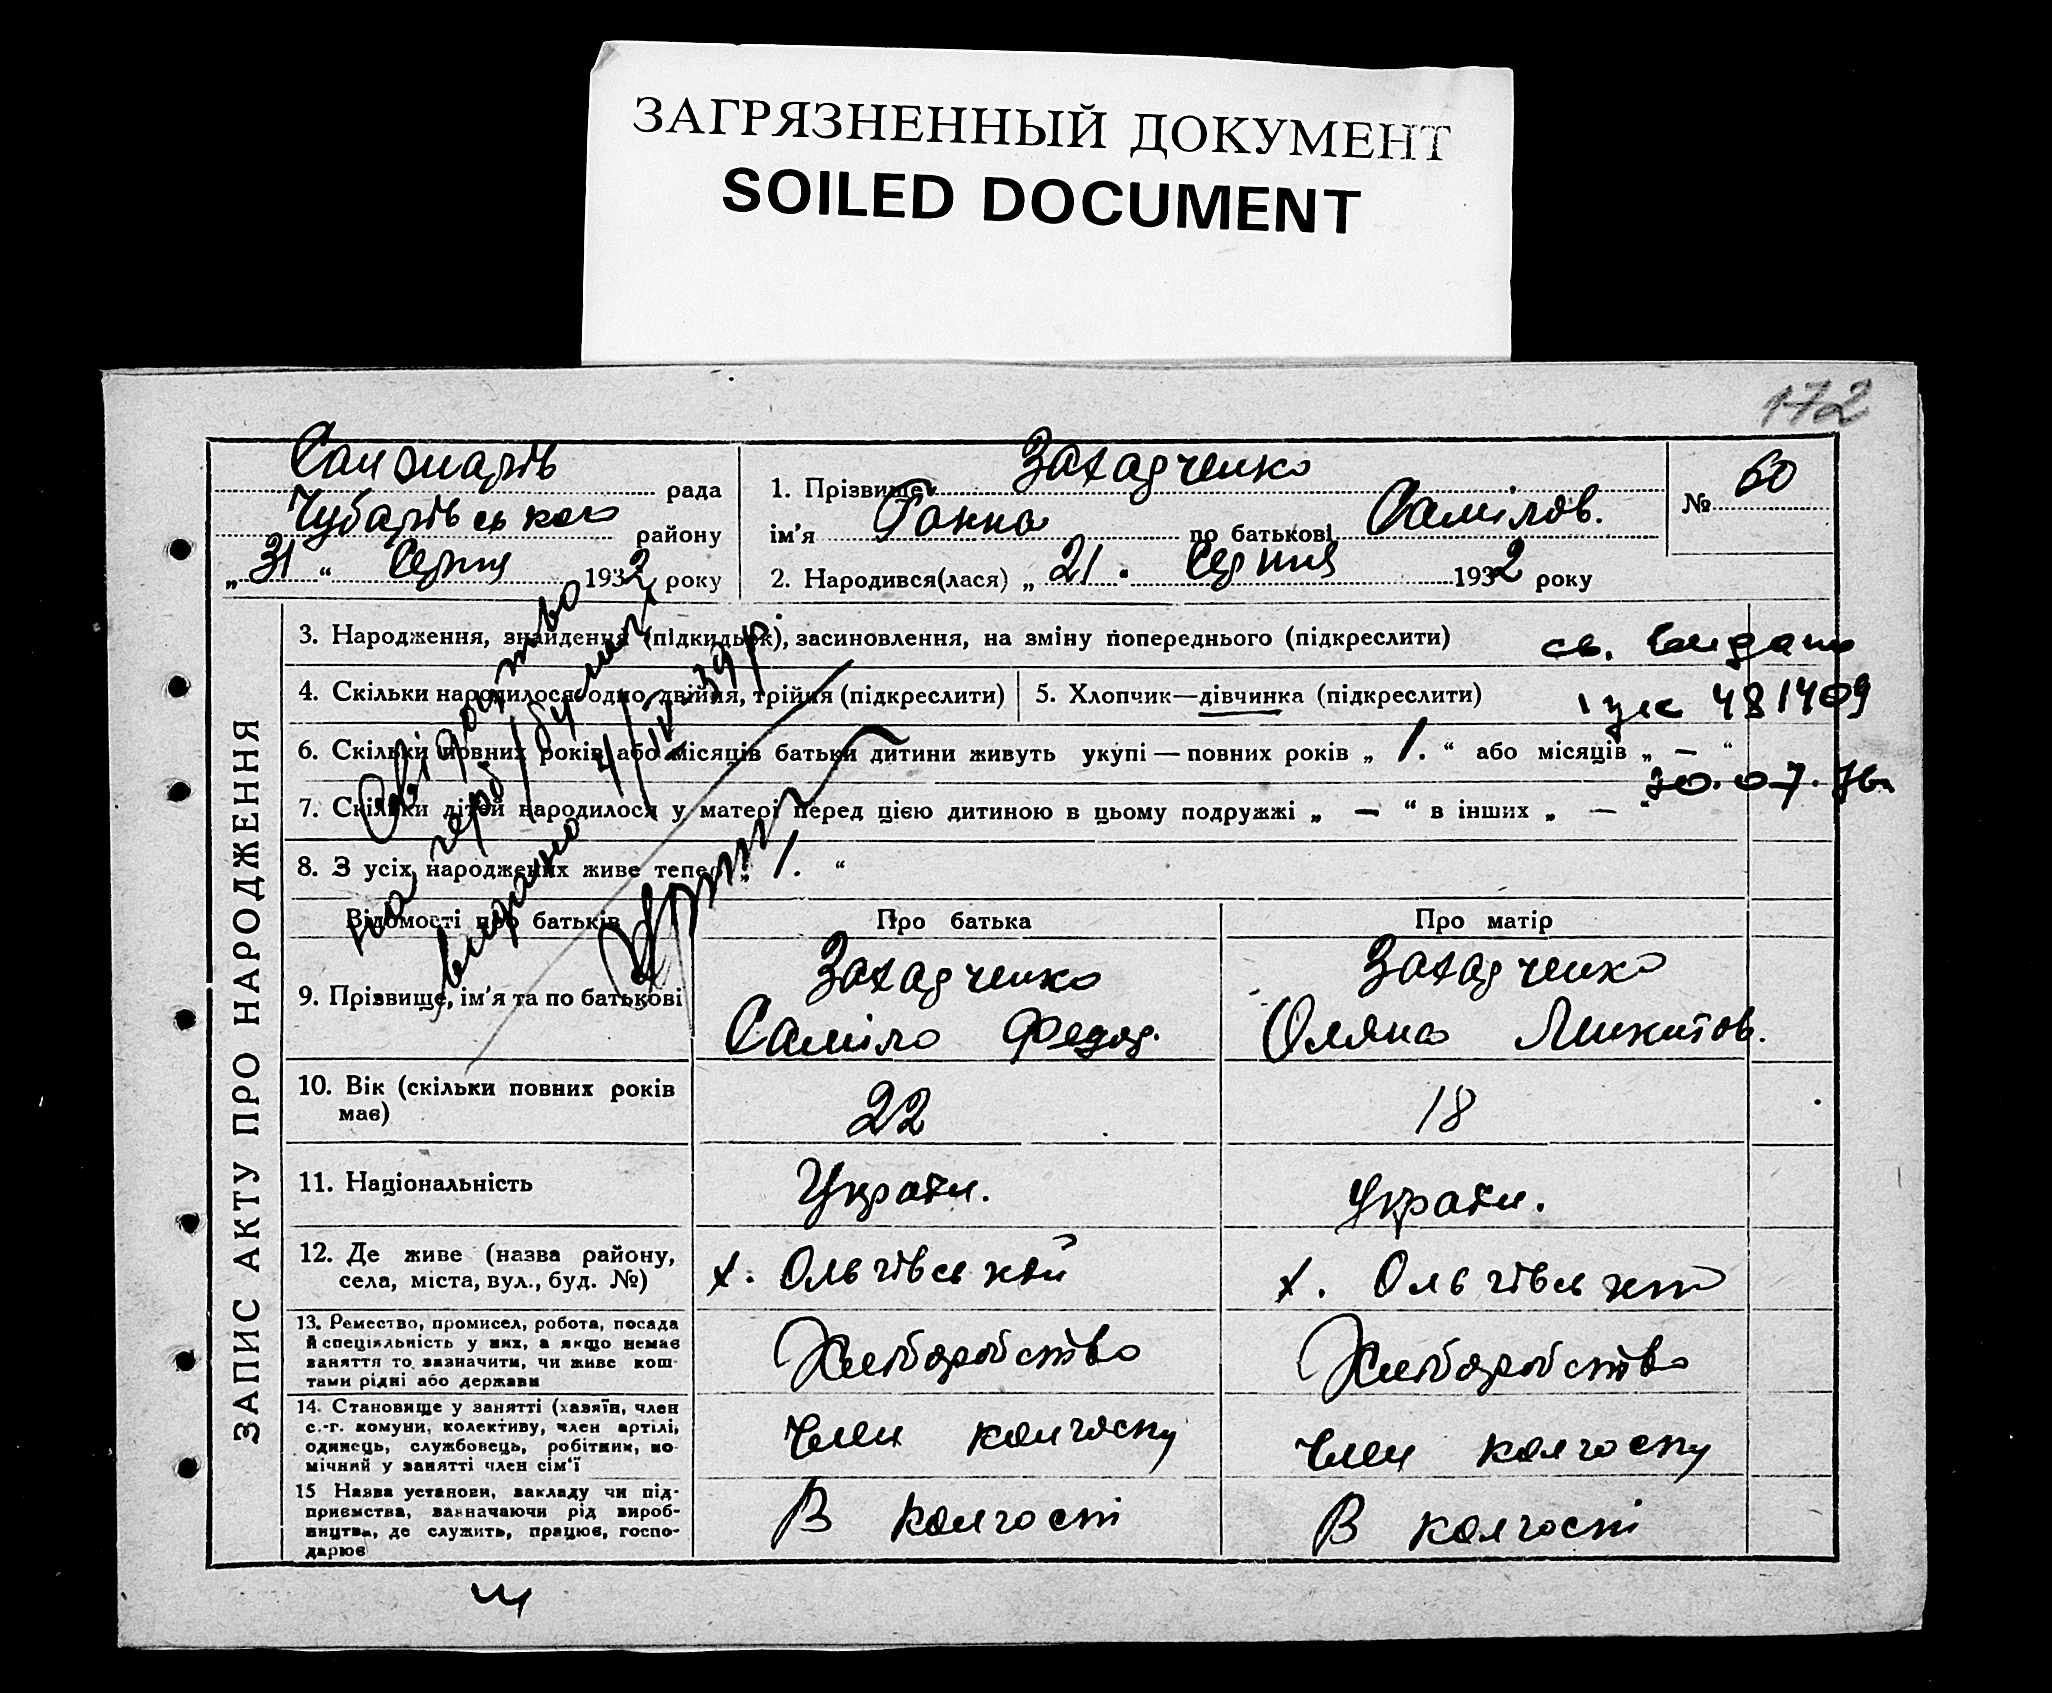 ЗАГРЯЗНЕННЫЙ ДОКУМЕНТ
SOILED DOCUMENT
172
рада
Чубарівського району
„ 31 “ Серпня 1932 року
1. Прізвище Захадченко
ім'я Ганна по батькові Самілов.
2. Народився(лася) „ 21. Серпня 1932 року
№ 60
ЗАПИС АКТУ ПРО НАРОДЖЕННЯ
3. Народження, знайдення (підкидьок), засиновлення, на зміну попереднього (підкреслити)
4. Скільки народилося: одно, двійня, трійня (підкреслити)
5. Хлопчик—дівчинка (підкреслити)
6. Скільки повних років або місяців батьки дитини живуть укупі — повних років „ 1. “ або місяців „ — “
7. Скільки дітей народилося у матері перед цією дитиною в цьому подружжі „ — “ в інших „ — “
8. З усіх народжених живе тепер „ 1. “
св. видано
481409
30.07.76
Свідоцтво
видано 4/IV-39 р.
Відомості про батьків
Про батька
Про матір
9. Прізвище, ім'я та по батькові
Захадченко
Саміло Федор.
Захадченко
Оляна Микитов.
10. Вік (скільки повних років
має)
22
18
11. Національність
Україн.
Україн.
12. Де живе (назва району,
села, міста, вул., буд. №)
х. Ольгівський
х. Ольгівський
13. Ремество, промисел, робота, посада
й спеціяльність у них, а якщо немає
заняття то зазначити, чи живе кош-
тами рідні або держави
Хліборобство
Хліборобство
14. Становище у занятті (хазяїн, член
с.-г. комуни, колективу, член артілі,
одинець, службовець, робітник, по-
мічний у занятті член сім'ї
Член колгоспу
Член колгоспу
15 Назва установи, закладу чи під-
приємства, зазначаючи рід вироб-
ництва, де служить, працює, госпо-
дарює
В колгоспі
В колгоспі